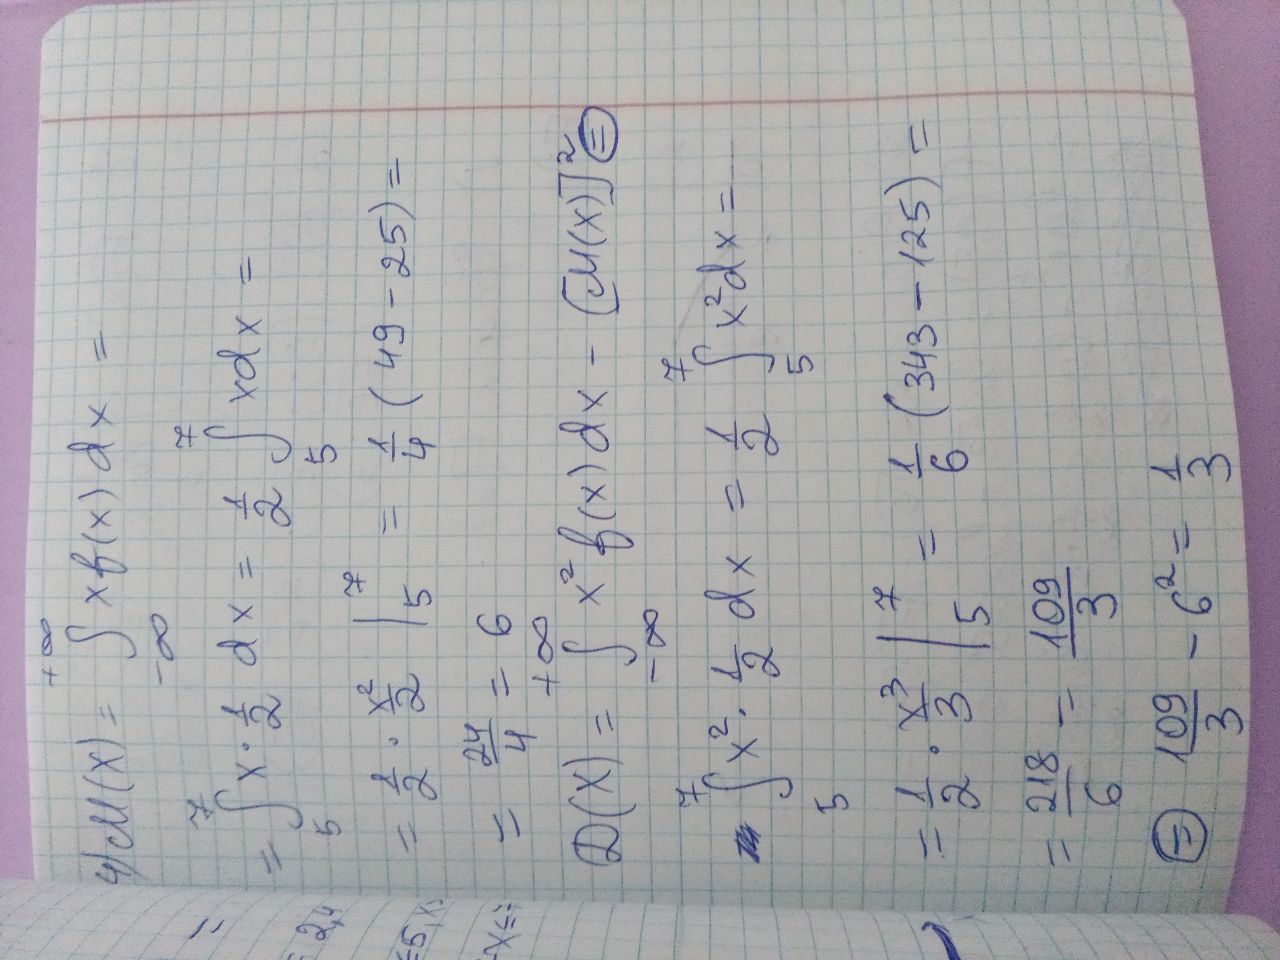 4) M(X) = ∫_{-∞}^{+∞} x f(x) dx =
= ∫_5^7 x · 1/2 dx = 1/2 ∫_5^7 x dx =
= 1/2 · x²/2 |_5^7 = 1/4 (49 - 25) =
= 24/4 = 6
D(X) = ∫_{-∞}^{+∞} x² f(x) dx - [M(X)]² ⊜
∫_5^7 x² · 1/2 dx = 1/2 ∫_5^7 x² dx =
= 1/2 · x³/3 |_5^7 = 1/6 (343 - 125) =
= 218/6 = 109/3
⊜ 109/3 - 6² = 1/3
=
= 2,4